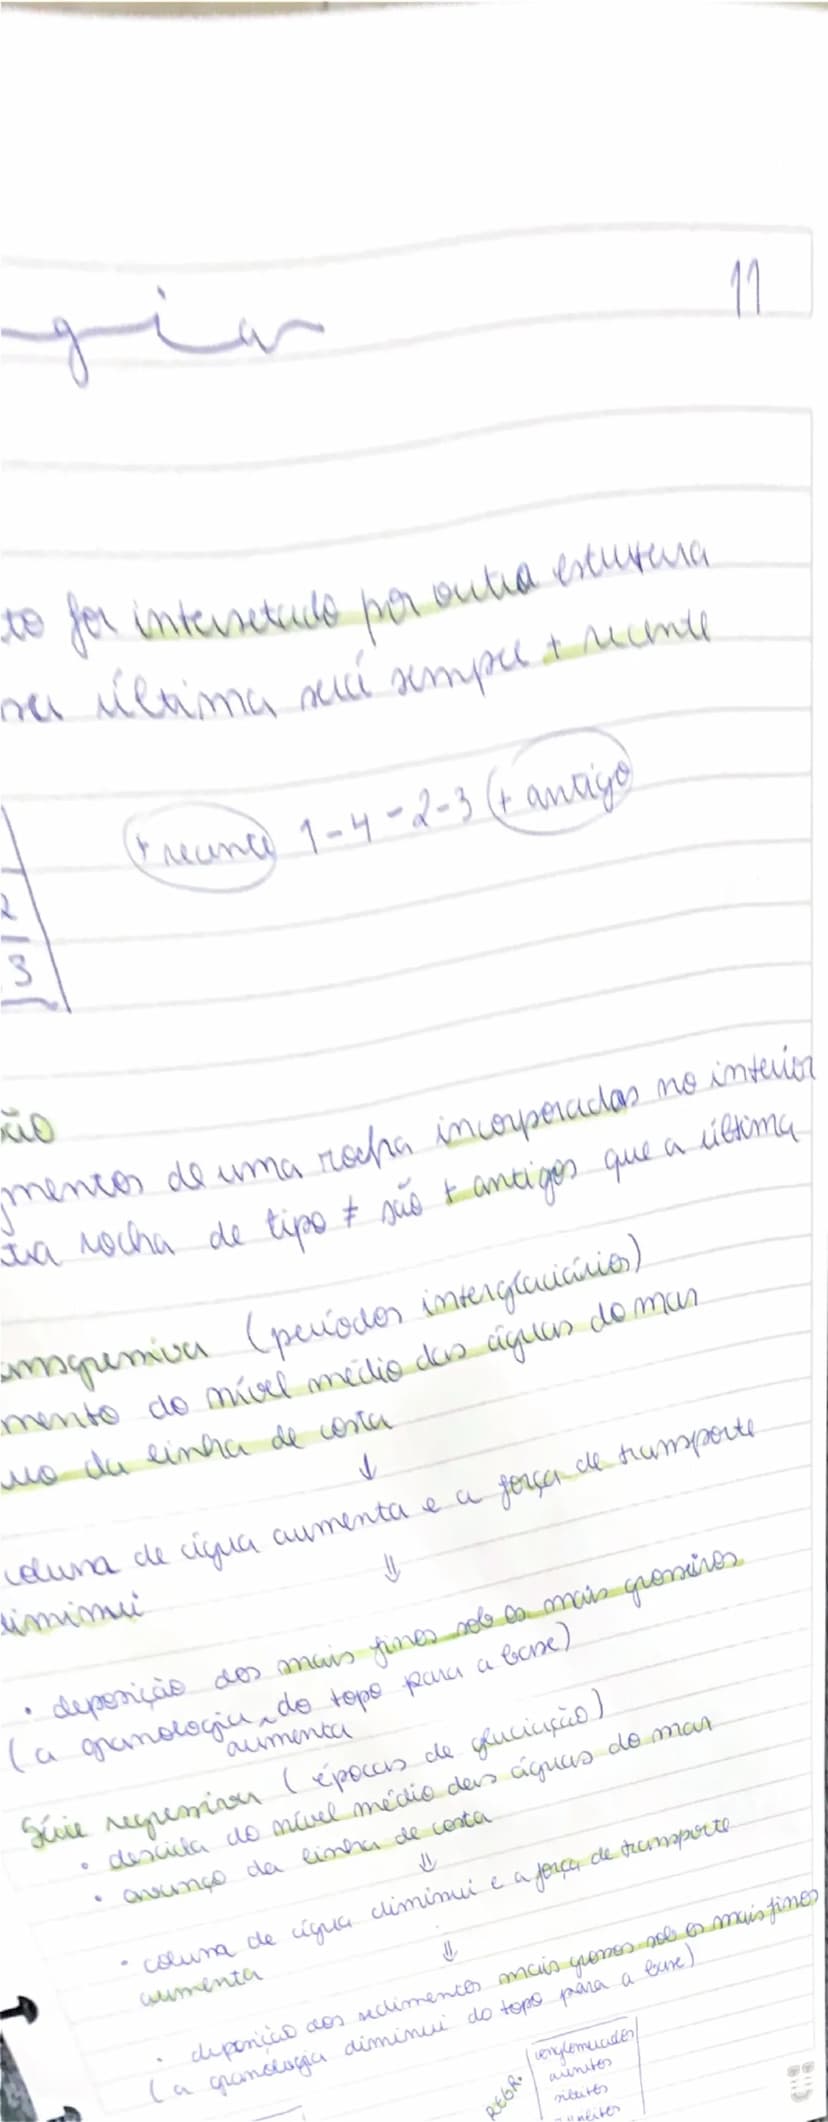 gia
11
to for intersetado por outra estutura
última será sempre + recente
+ recente 1-4-2-3 (+ antigo
2
3
xão
gmentos de uma rocha incorporados no interior
tra rocha de tipo ≠ são + antigos que a última
ansgressiva (períodos interglaciários)
mento do nível médio das águas do mar
uo da linha de costa
↓
coluna de água aumenta e a força de transporte
⇓
diminui
• deposição dos mais finos sob os mais grosseiros
(a granologia do topo para a base)
aumenta
Série regressiva (épocas de glaciação)
• descida do nível médio das águas do mar
• avanço da linha de costa
⇓
• coluna de água diminui e a força de transporte
aumenta
⇓
• deposição dos sedimentos mais grossos sob os mais finos
(a granologia diminui do topo para a base)
REGR.
conglomerados
arenitos
siltitos